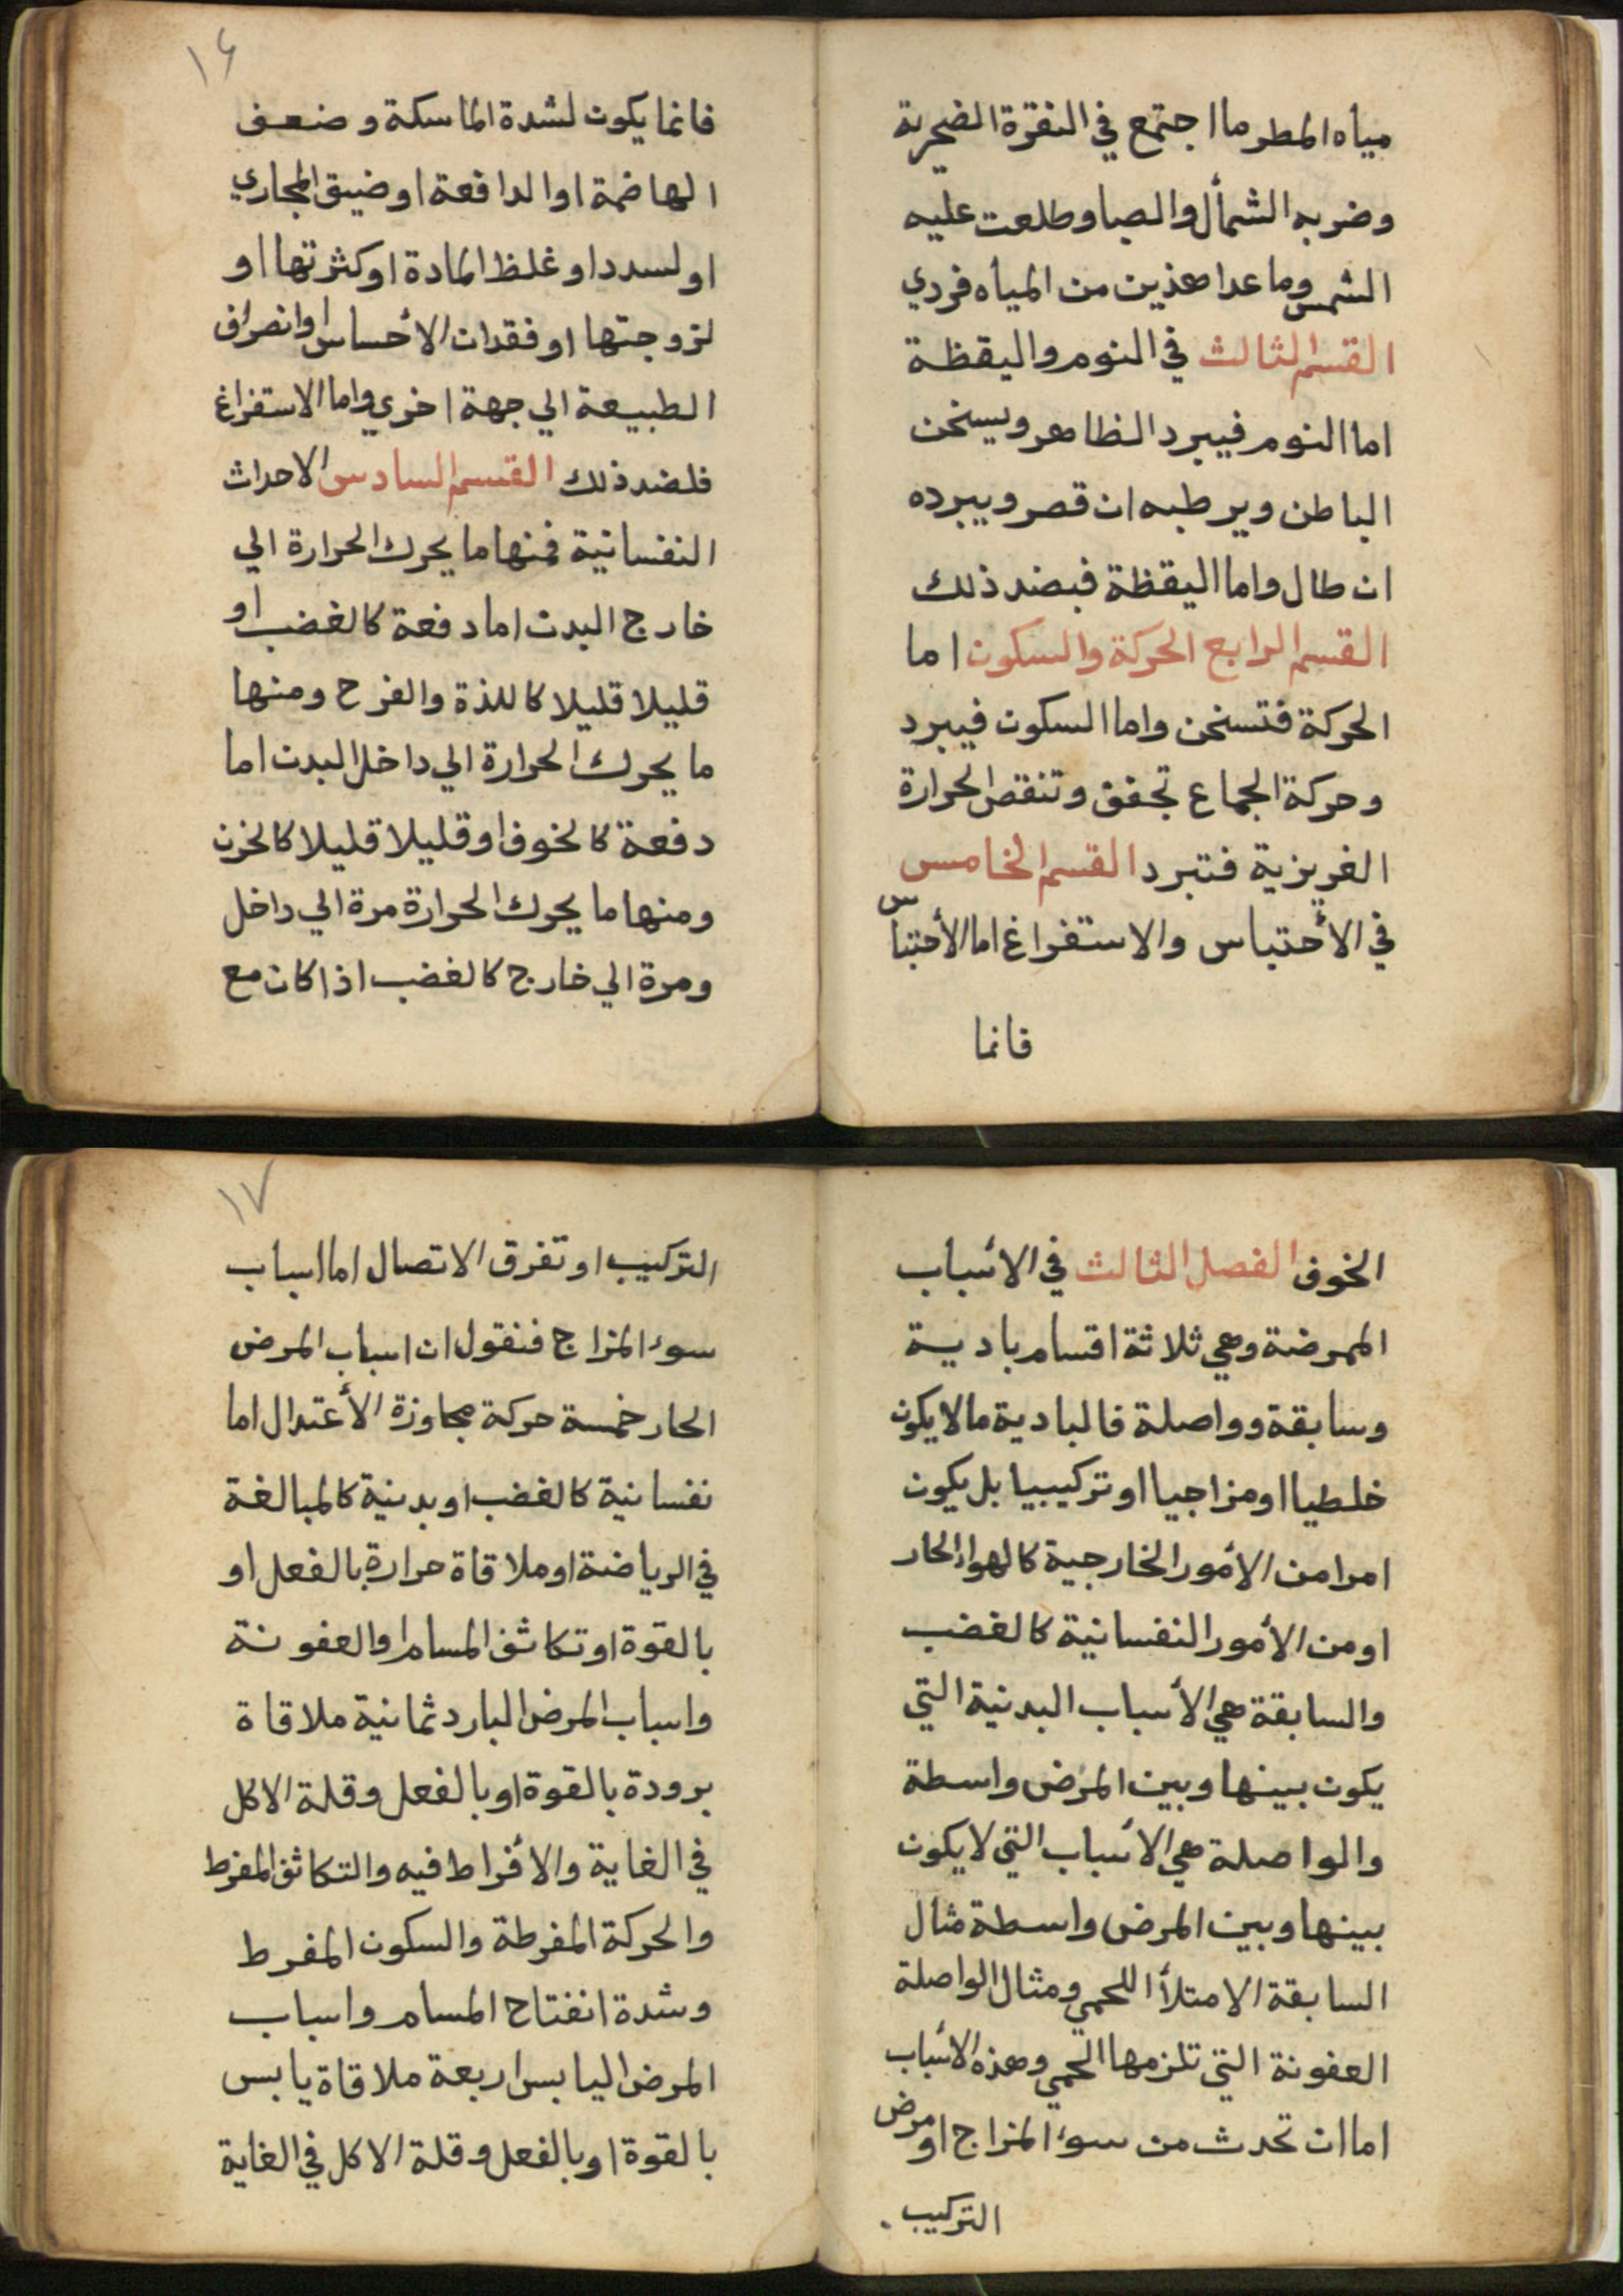 مياه المطر ما اجتمع في النقرة الصخرية
وضربه الشمأل والصبا وطلعت عليه
الشمس وما عدا هذين من المياه فردي
القسم الثالث في النوم واليقظة
اما النوم فيبرد الظاهر ويسخن
الباطن ويرطبه ان قصر ويبرده
ان طال واما اليقظة فبضد ذلك
القسم الرابع الحركة والسكون اما
الحركة فتسخن واما السكون فيبرد
وحركة الجماع تجفف وتنقص الحرارة
الغريزية فتبرد القسم الخامس
في الأحتباس والاستفراغ اما الأحتباس
فانما
١٦
فانما يكون لشدة الماسكة وضعف
الهاضمة او الدافعة او ضيق المجاري
او لسدد او غلظ المادة او كثرتها او
لزوجتها او فقدان الأحساس او انصراف
الطبيعة الي جهة اخري واما الاستفراغ
فلضد ذلك القسم السادس الاحداث
النفسانية فمنها ما يحرك الحرارة الي
خارج البدن اما دفعة كالغضب او
قليلا قليلا كاللذة والفرح ومنها
ما يحرك الحرارة الي داخل البدن اما
دفعة كالخوف او قليلا قليلا كالحزن
ومنها ما يحرك الحرارة مرة الي داخل
ومرة الي خارج كالغضب اذا كان مع
الخوف الفصل الثالث في الأسباب
الممرضة وهي ثلاثة اقسام بادية
وسابقة وواصلة فالبادية ما لا يكون
خلطيا او مزاجيا او تركيبيا بل يكون
امرا من الأمور الخارجية كالهواء الحار
او من الأمور النفسانية كالغضب
والسابقة هي الأسباب البدنية التي
يكون بينها وبين المرض واسطة
والواصلة هي الأسباب التي لا يكون
بينها وبين المرض واسطة مثال
السابقة الامتلأ اللحمي ومثال الواصلة
العفونة التي تلزمها الحمي وهذه الأسباب
اما ان تحدث من سوء المزاج او مرض
التركيب.
١٧
التركيب او تفرق الاتصال اما اسباب
سوء المزاج فنقول ان اسباب المرض
الحار خمسة حركة مجاوزة الأعتدال اما
نفسانية كالغضب او بدنية كالمبالغة
في الرياضة او ملاقاة حرارة بالفعل او
بالقوة او تكاثف المسام او العفونة
واسباب المرض البارد ثمانية ملاقاة
برودة بالقوة او بالفعل وقلة الاكل
في الغاية والأفراط فيه والتكاثف المفرط
والحركة المفرطة والسكون المفرط
وشدة انفتاح المسام واسباب
المرض اليابس اربعة ملاقاة يابس
بالقوة او بالفعل وقلة الاكل في الغاية